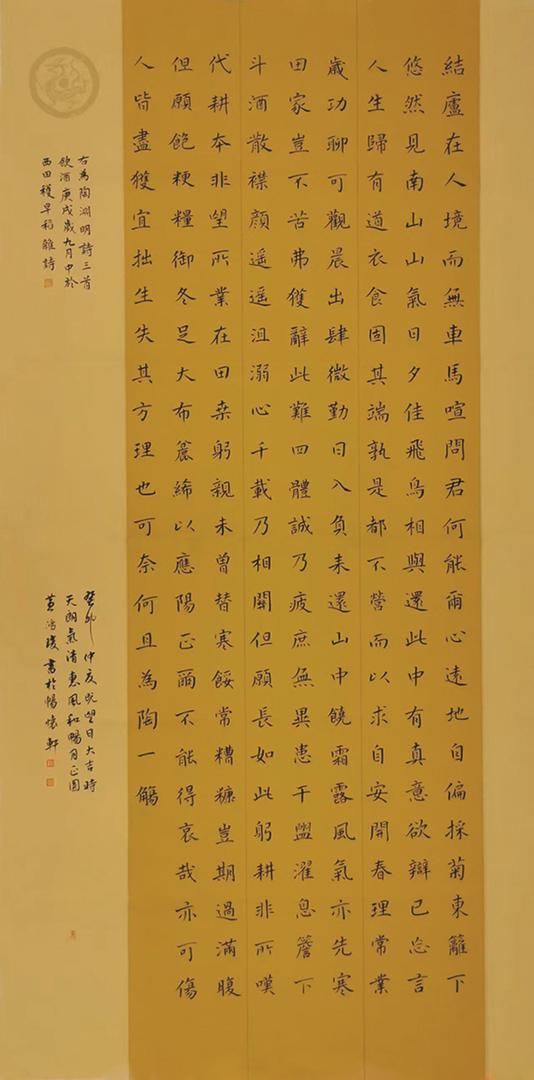 結廬在人境而無車馬喧問君何能爾心遠地自偏採菊東籬下
悠然見南山山氣日夕佳飛鳥相與還此中有真意欲辯已忘言
人生歸有道衣食固其端孰是都不營而以求自安開春理常業
歲功聊可觀晨出肆微勤日入負耒還山中饒霜露風氣亦先寒
田家豈不苦弗獲辭此難四體誠乃疲庶無異患干盥濯息簷下
斗酒散襟顏遥遥沮溺心千載乃相關但願長如此躬耕非所嘆
代耕本非望所業在田桒躬親未曾替寒餒常糟糠豈期過滿腹
但願飽粳糧御冬足大布麤絺以應陽正爾不能得哀哉亦可傷
人皆盡獲宜拙生失其方理也可奈何且為陶一觴
右為陶淵明詩三首
飲酒庚戌歲九月中於
西田穫早稻雜詩
癸卯仲夏既望日大吉時
天朗氣清惠風和暢月正圓
黃鴻書於暢懷軒